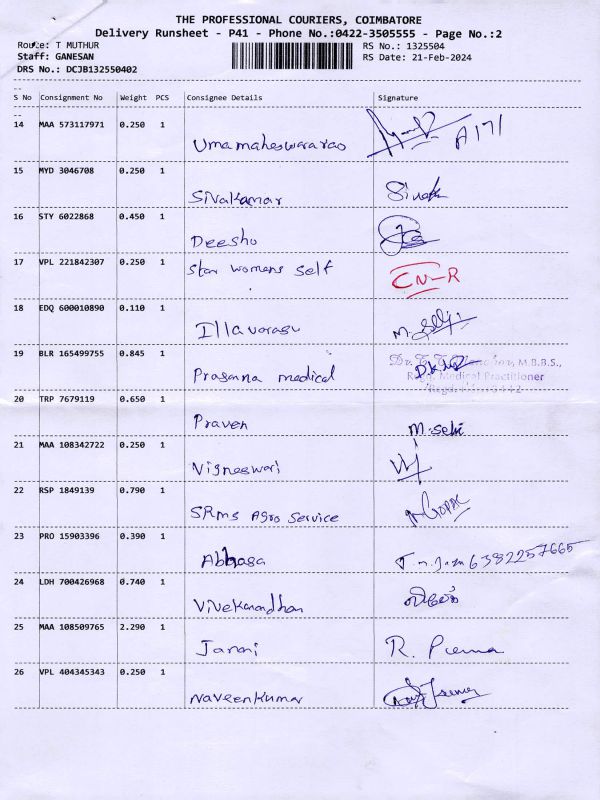 THE PROFESSIONAL COURIERS, COIMBATORE
Delivery Runsheet - P41 - Phone No.:0422-3505555 - Page No.:2
Route: T MUTHUR RS No.: 1325504
Staff: GANESAN RS Date: 21-Feb-2024
DRS No.: DCJB132550402
S No Consignment No Weight PCS Consignee Details Signature
14 MAA 573117971 0.250 1 Umamaheswararao A171
15 MYD 3046708 0.250 1 Sivakamar
16 STY 6022868 0.450 1 Deesho
17 VPL 221842307 0.250 1 Star womens self CN-R
18 EDQ 600010890 0.110 1 Illavarasu
19 BLR 165499755 0.845 1 Prasanna medical
M.B.B.S.,
Medical Practitioner
20 TRP 7679119 0.650 1 Praven M.selvi
21 MAA 108342722 0.250 1 Vigneswari
22 RSP 1849139 0.790 1 SRms Agro Service
23 PRO 15903396 0.390 1 Abhasa 6382257665
24 LDH 700426968 0.740 1 Vivekanadhan
25 MAA 108509765 2.290 1 Janani R. Prema
26 VPL 404345343 0.250 1 Naveenkumar